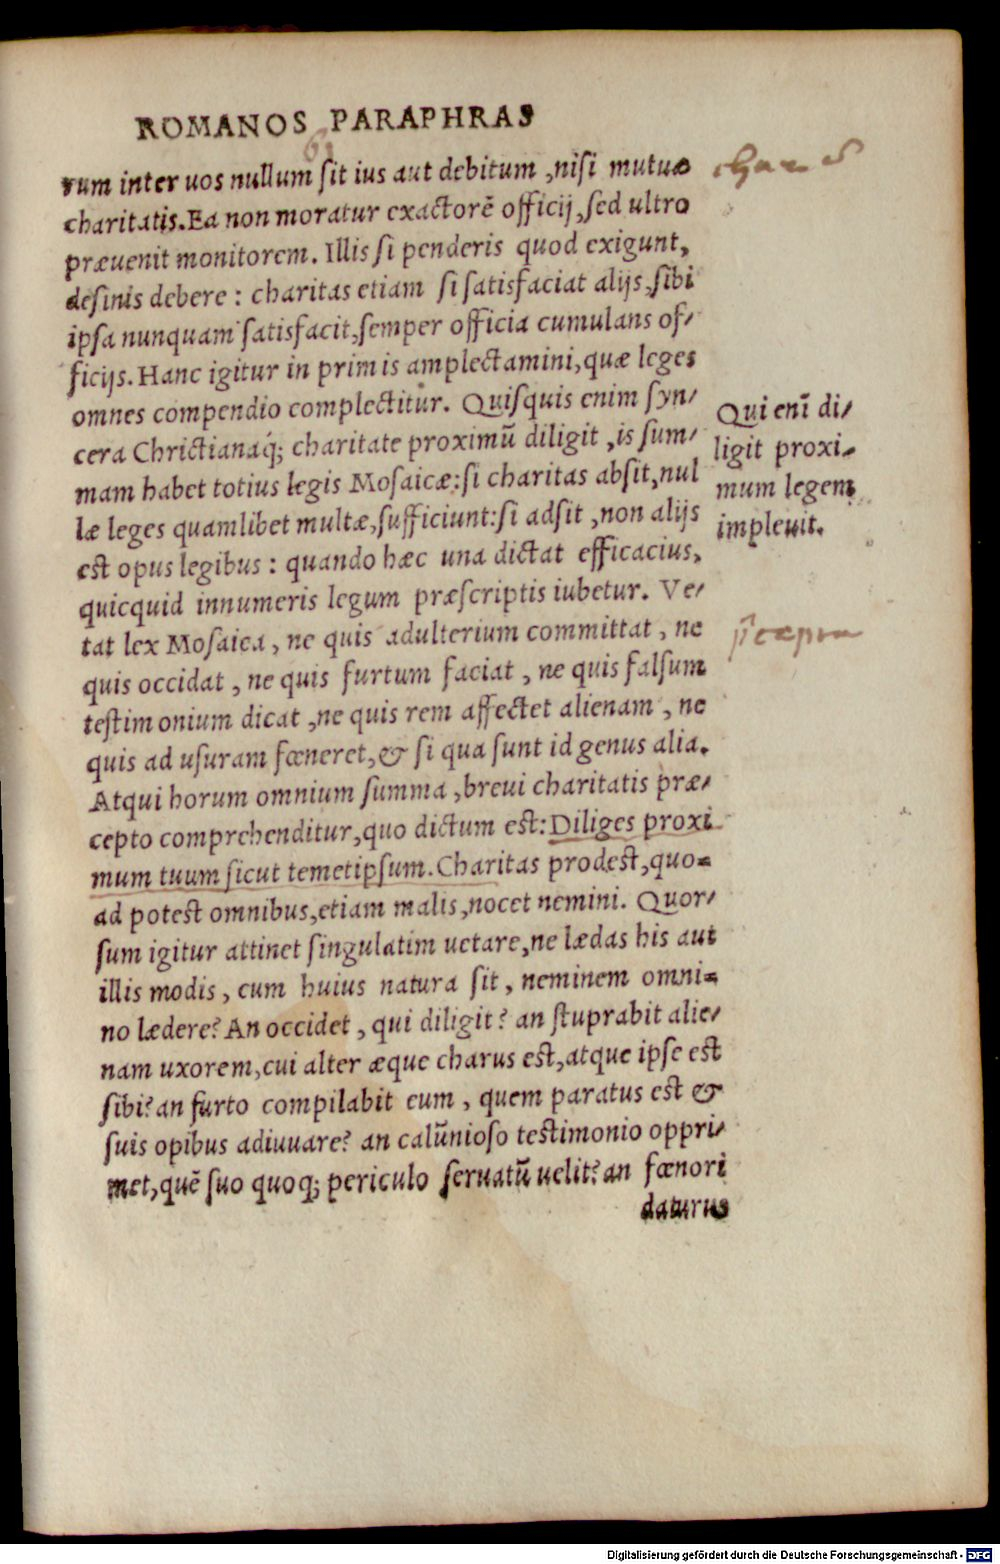 ROMANOS PARAPHRAS
rum inter uos nullum sit ius aut debitum, nisi mutuæ
charitatis. Ea non moratur exactorē officij, sed ultro
præuenit monitorem. Illis si penderis quod exigunt,
desinis debere: charitas etiam si satisfaciat alijs, sibi
ipsa nunquam satisfacit, semper officia cumulans of-
ficijs. Hanc igitur in primis amplectamini, quæ leges
omnes compendio complectitur. Quisquis enim syn-
cera Christianaq́; charitate proximū diligit, is sum-
mam habet totius legis Mosaicæ: si charitas absit, nul
læ leges quamlibet multæ, sufficiunt: si adsit, non alijs
est opus legibus: quando hæc una dictat efficacius,
quicquid innumeris legum præscriptis iubetur. Ve-
tat lex Mosaica, ne quis adulterium committat, ne
quis occidat, ne quis furtum faciat, ne quis falsum
testimonium dicat, ne quis rem affectet alienam, ne
quis ad usuram fœneret, & si qua sunt id genus alia.
Atqui horum omnium summa, breui charitatis præ-
cepto comprehenditur, quo dictum est: Diliges proxi
mum tuum sicut temetipsum. Charitas prodest, quo-
ad potest omnibus, etiam malis, nocet nemini. Quor-
sum igitur attinet singulatim uetare, ne lædas his aut
illis modis, cum huius natura sit, neminem omni-
no lædere? An occidet, qui diligit? an stuprabit alie-
nam uxorem, cui alter æque charus est, atque ipse est
sibi? an furto compilabit eum, quem paratus est &
suis opibus adiuuare? an calūnioso testimonio oppri-
met, quē suo quoq; periculo seruatū uelit? an fœnori
daturus
Qui enī di-
ligit proxi-
mum legem
impleuit.
Digitalisierung gefördert durch die Deutsche Forschungsgemeinschaft - DFG